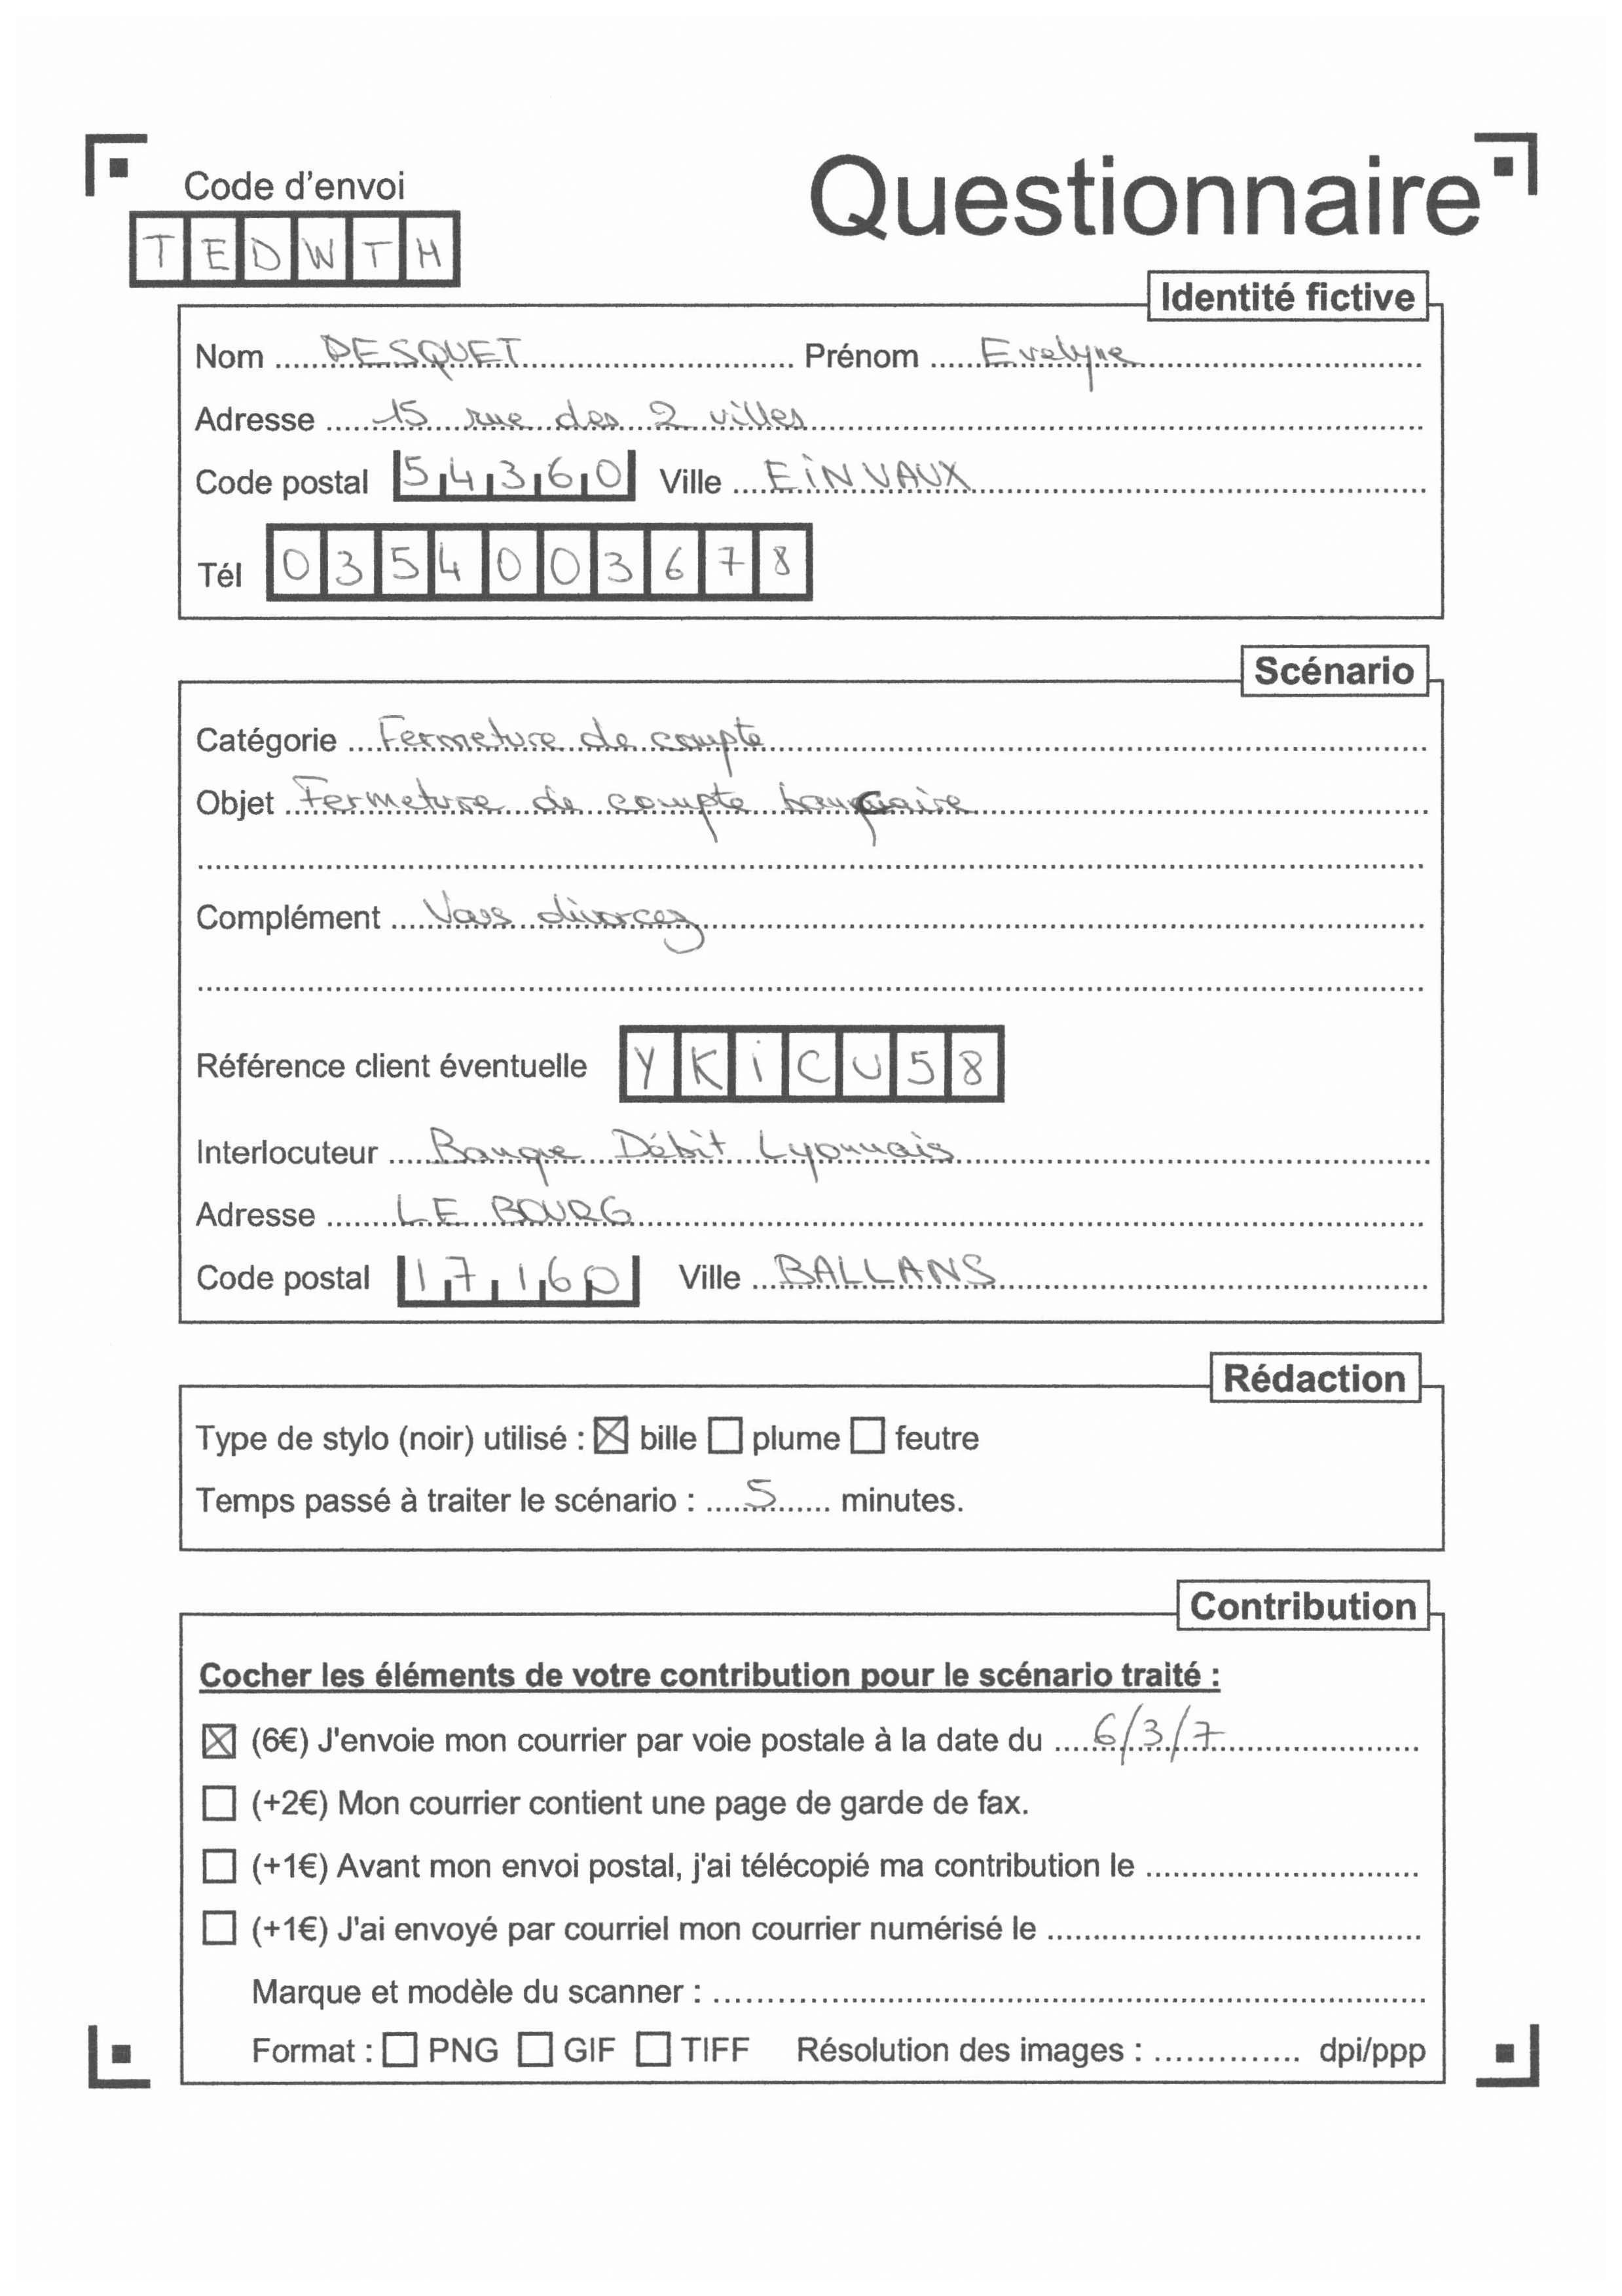 Code d'envoi
Questionnaire
TEDWTH
Identité fictive
Nom DESQUET Prénom Evelyne
Adresse 15 rue des 2 villes
Code postal 54360 Ville EiNVAUX
Tél 0354003678
Scénario
Catégorie Fermeture de compte
Objet Fermeture de compte bancaire
Complément Vous divorcez
Référence client éventuelle YKiCU58
Interlocuteur Banque Débit Lyonnais
Adresse LE BOURG
Code postal 17160 Ville BALLANS
Rédaction
Type de stylo (noir) utilisé : ☒ bille ☐ plume ☐ feutre
Temps passé à traiter le scénario : 5 minutes.
Contribution
Cocher les éléments de votre contribution pour le scénario traité :
☒ (6€) J'envoie mon courrier par voie postale à la date du 6/3/7
☐ (+2€) Mon courrier contient une page de garde de fax.
☐ (+1€) Avant mon envoi postal, j'ai télécopié ma contribution le
☐ (+1€) J'ai envoyé par courriel mon courrier numérisé le
Marque et modèle du scanner :
Format : ☐ PNG ☐ GIF ☐ TIFF Résolution des images : dpi/ppp